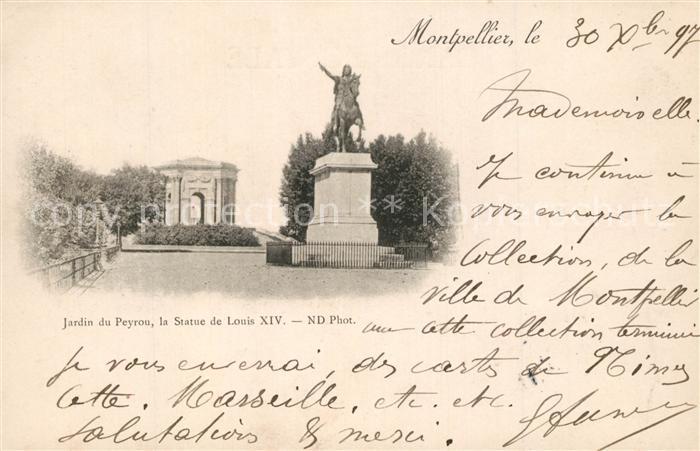 Montpellier, le 30 Xbre 97
Mademoiselle.
Je continue à
vous envoyer la
Collection, de la
ville de Montpellier
une cette collection terminée
Jardin du Peyrou, la Statue de Louis XIV. — ND Phot.
Je vous enverrai, des cartes de Nimes
Cette. Marseille, etc. etc.
Salutations & merci.
copyright Kopierschutz